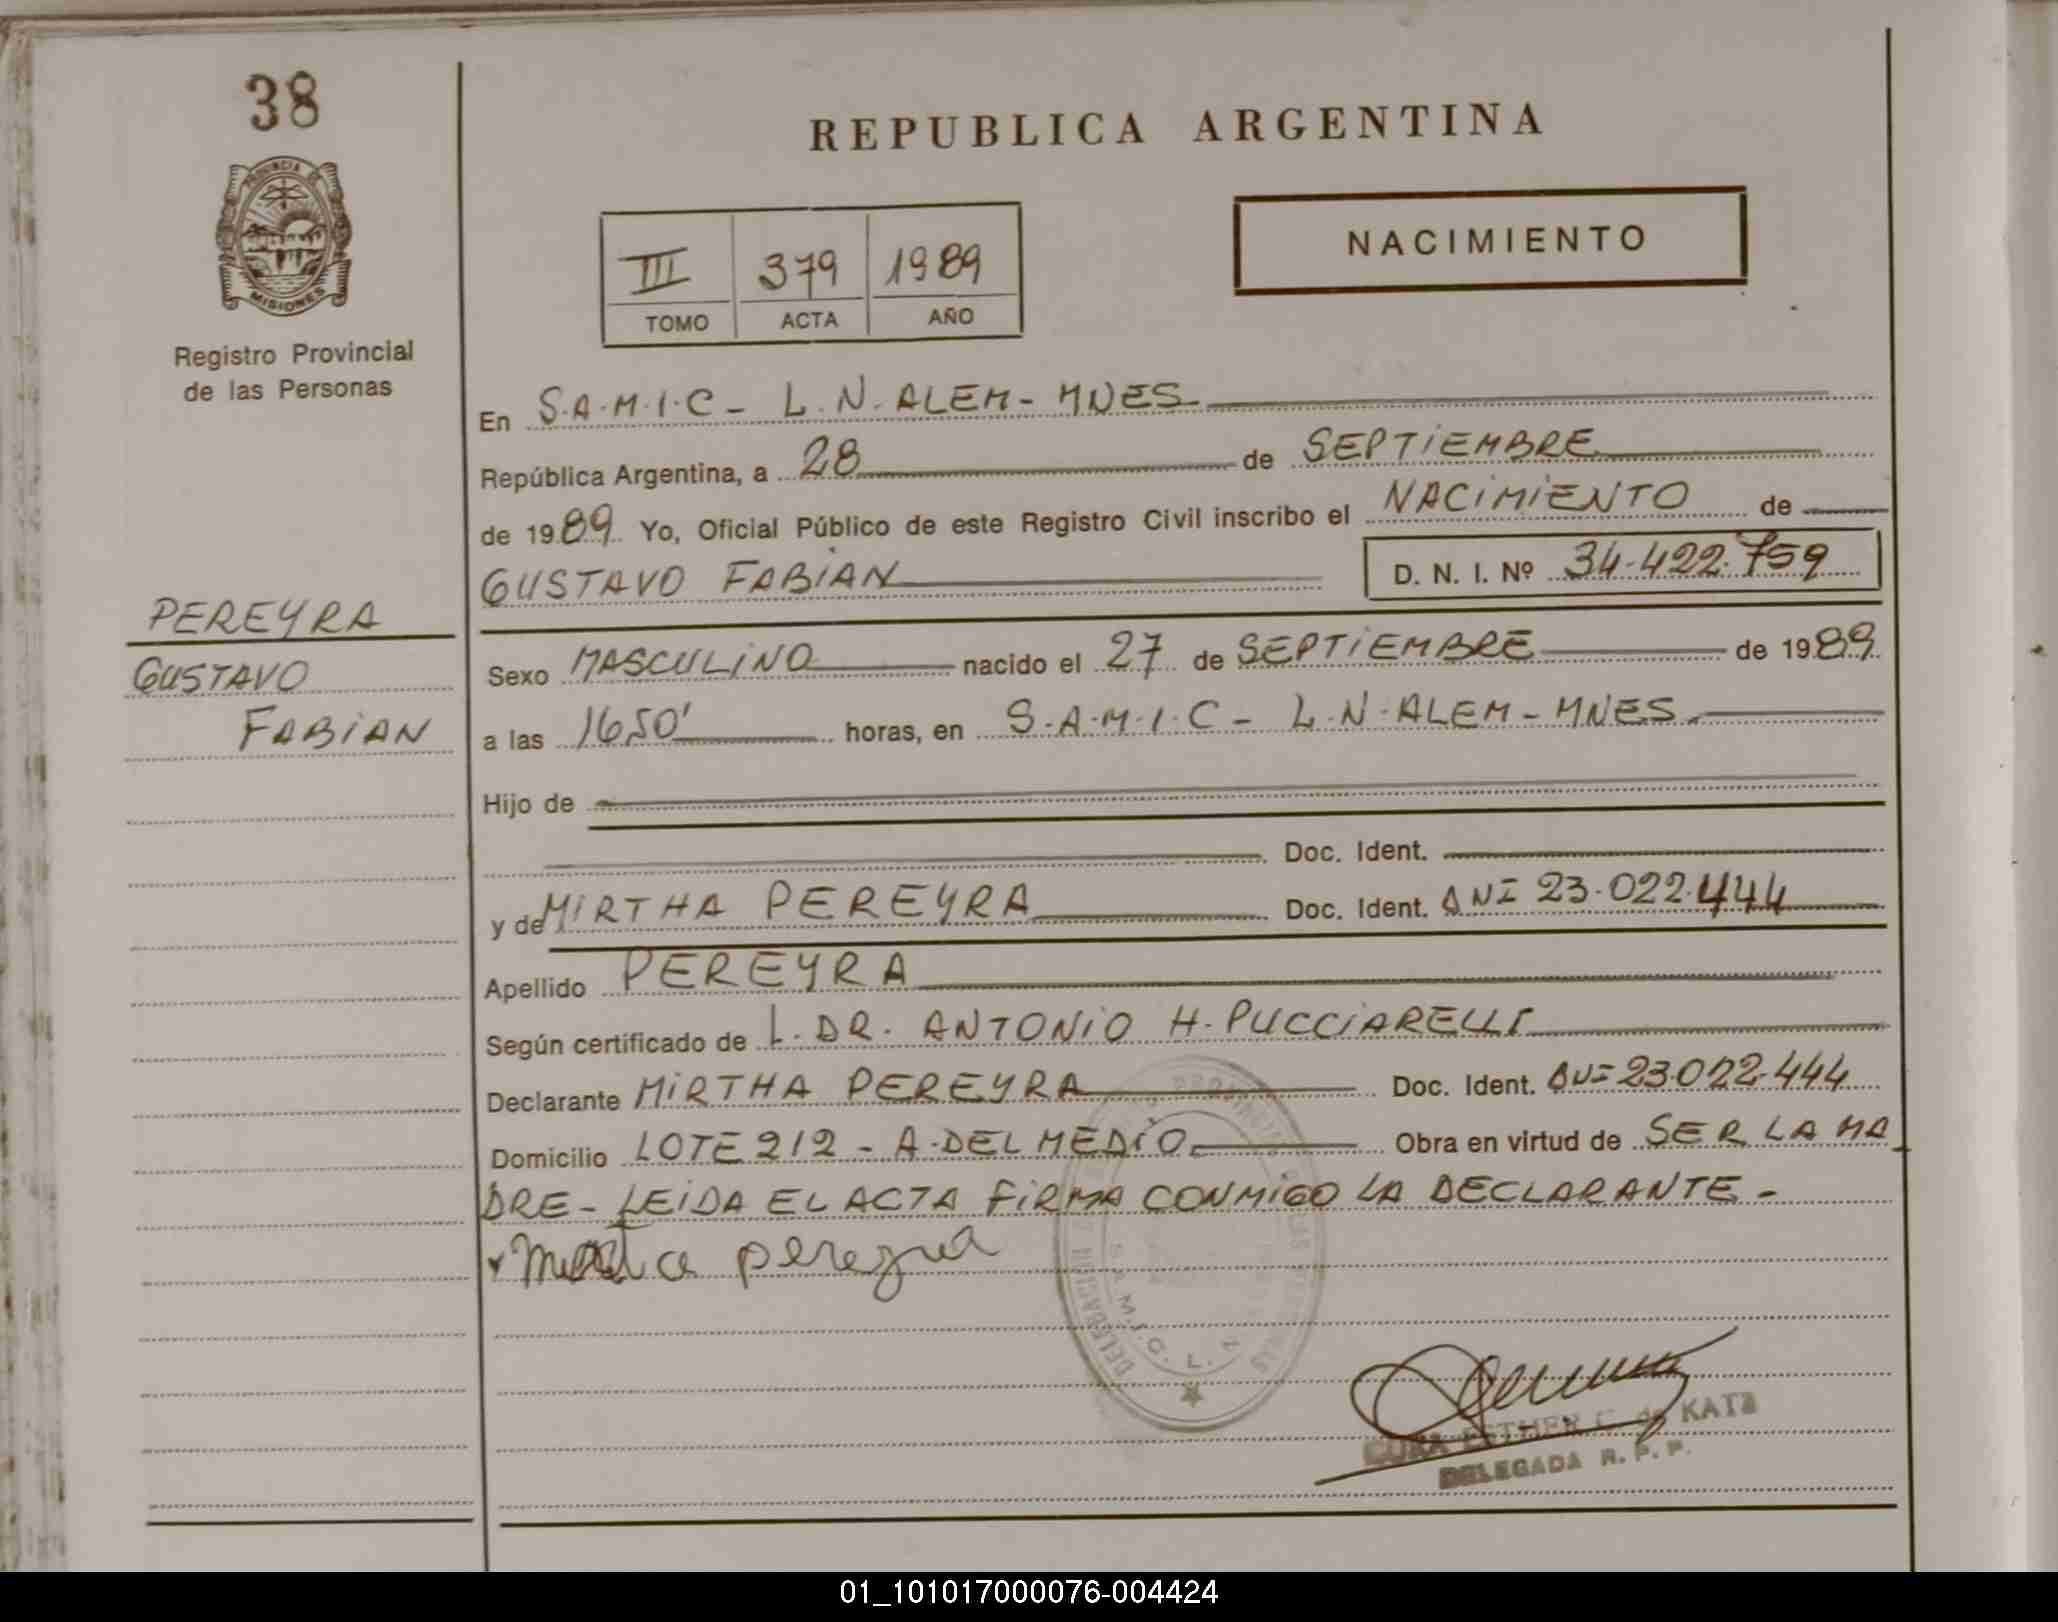 38
PROVINCIA DE
MISIONES
Registro Provincial
de las Personas
PEREYRA
GUSTAVO
FABIAN
REPUBLICA ARGENTINA
III 379 1989
TOMO ACTA AÑO
NACIMIENTO
En S.A.M.I.C - L.N.ALEM - MNES
República Argentina, a 28 de SEPTIEMBRE
de 1989 Yo, Oficial Público de este Registro Civil inscribo el NACIMIENTO de
GUSTAVO FABIAN D. N. I. Nº 34.422.759
Sexo MASCULINO nacido el 27 de SEPTIEMBRE de 1989
a las 16,50' horas, en S.A.M.I.C - L.N.ALEM - MNES
Hijo de
Doc. Ident.
y de MIRTHA PEREYRA Doc. Ident. DNI 23.022.444
Apellido PEREYRA
Según certificado de L. DR. ANTONIO H. PUCCIARELLI
Declarante MIRTHA PEREYRA Doc. Ident. DNI 23.022.444
Domicilio LOTE 212 - A. DEL MEDIO Obra en virtud de SER LA MA
DRE - LEIDA EL ACTA FIRMA CONMIGO LA DECLARANTE -
pereyra
S.A.M.I.C. L. N.
ESTHER C. de KATZ
DELEGADA R. P. P.
01_101017000076-004424